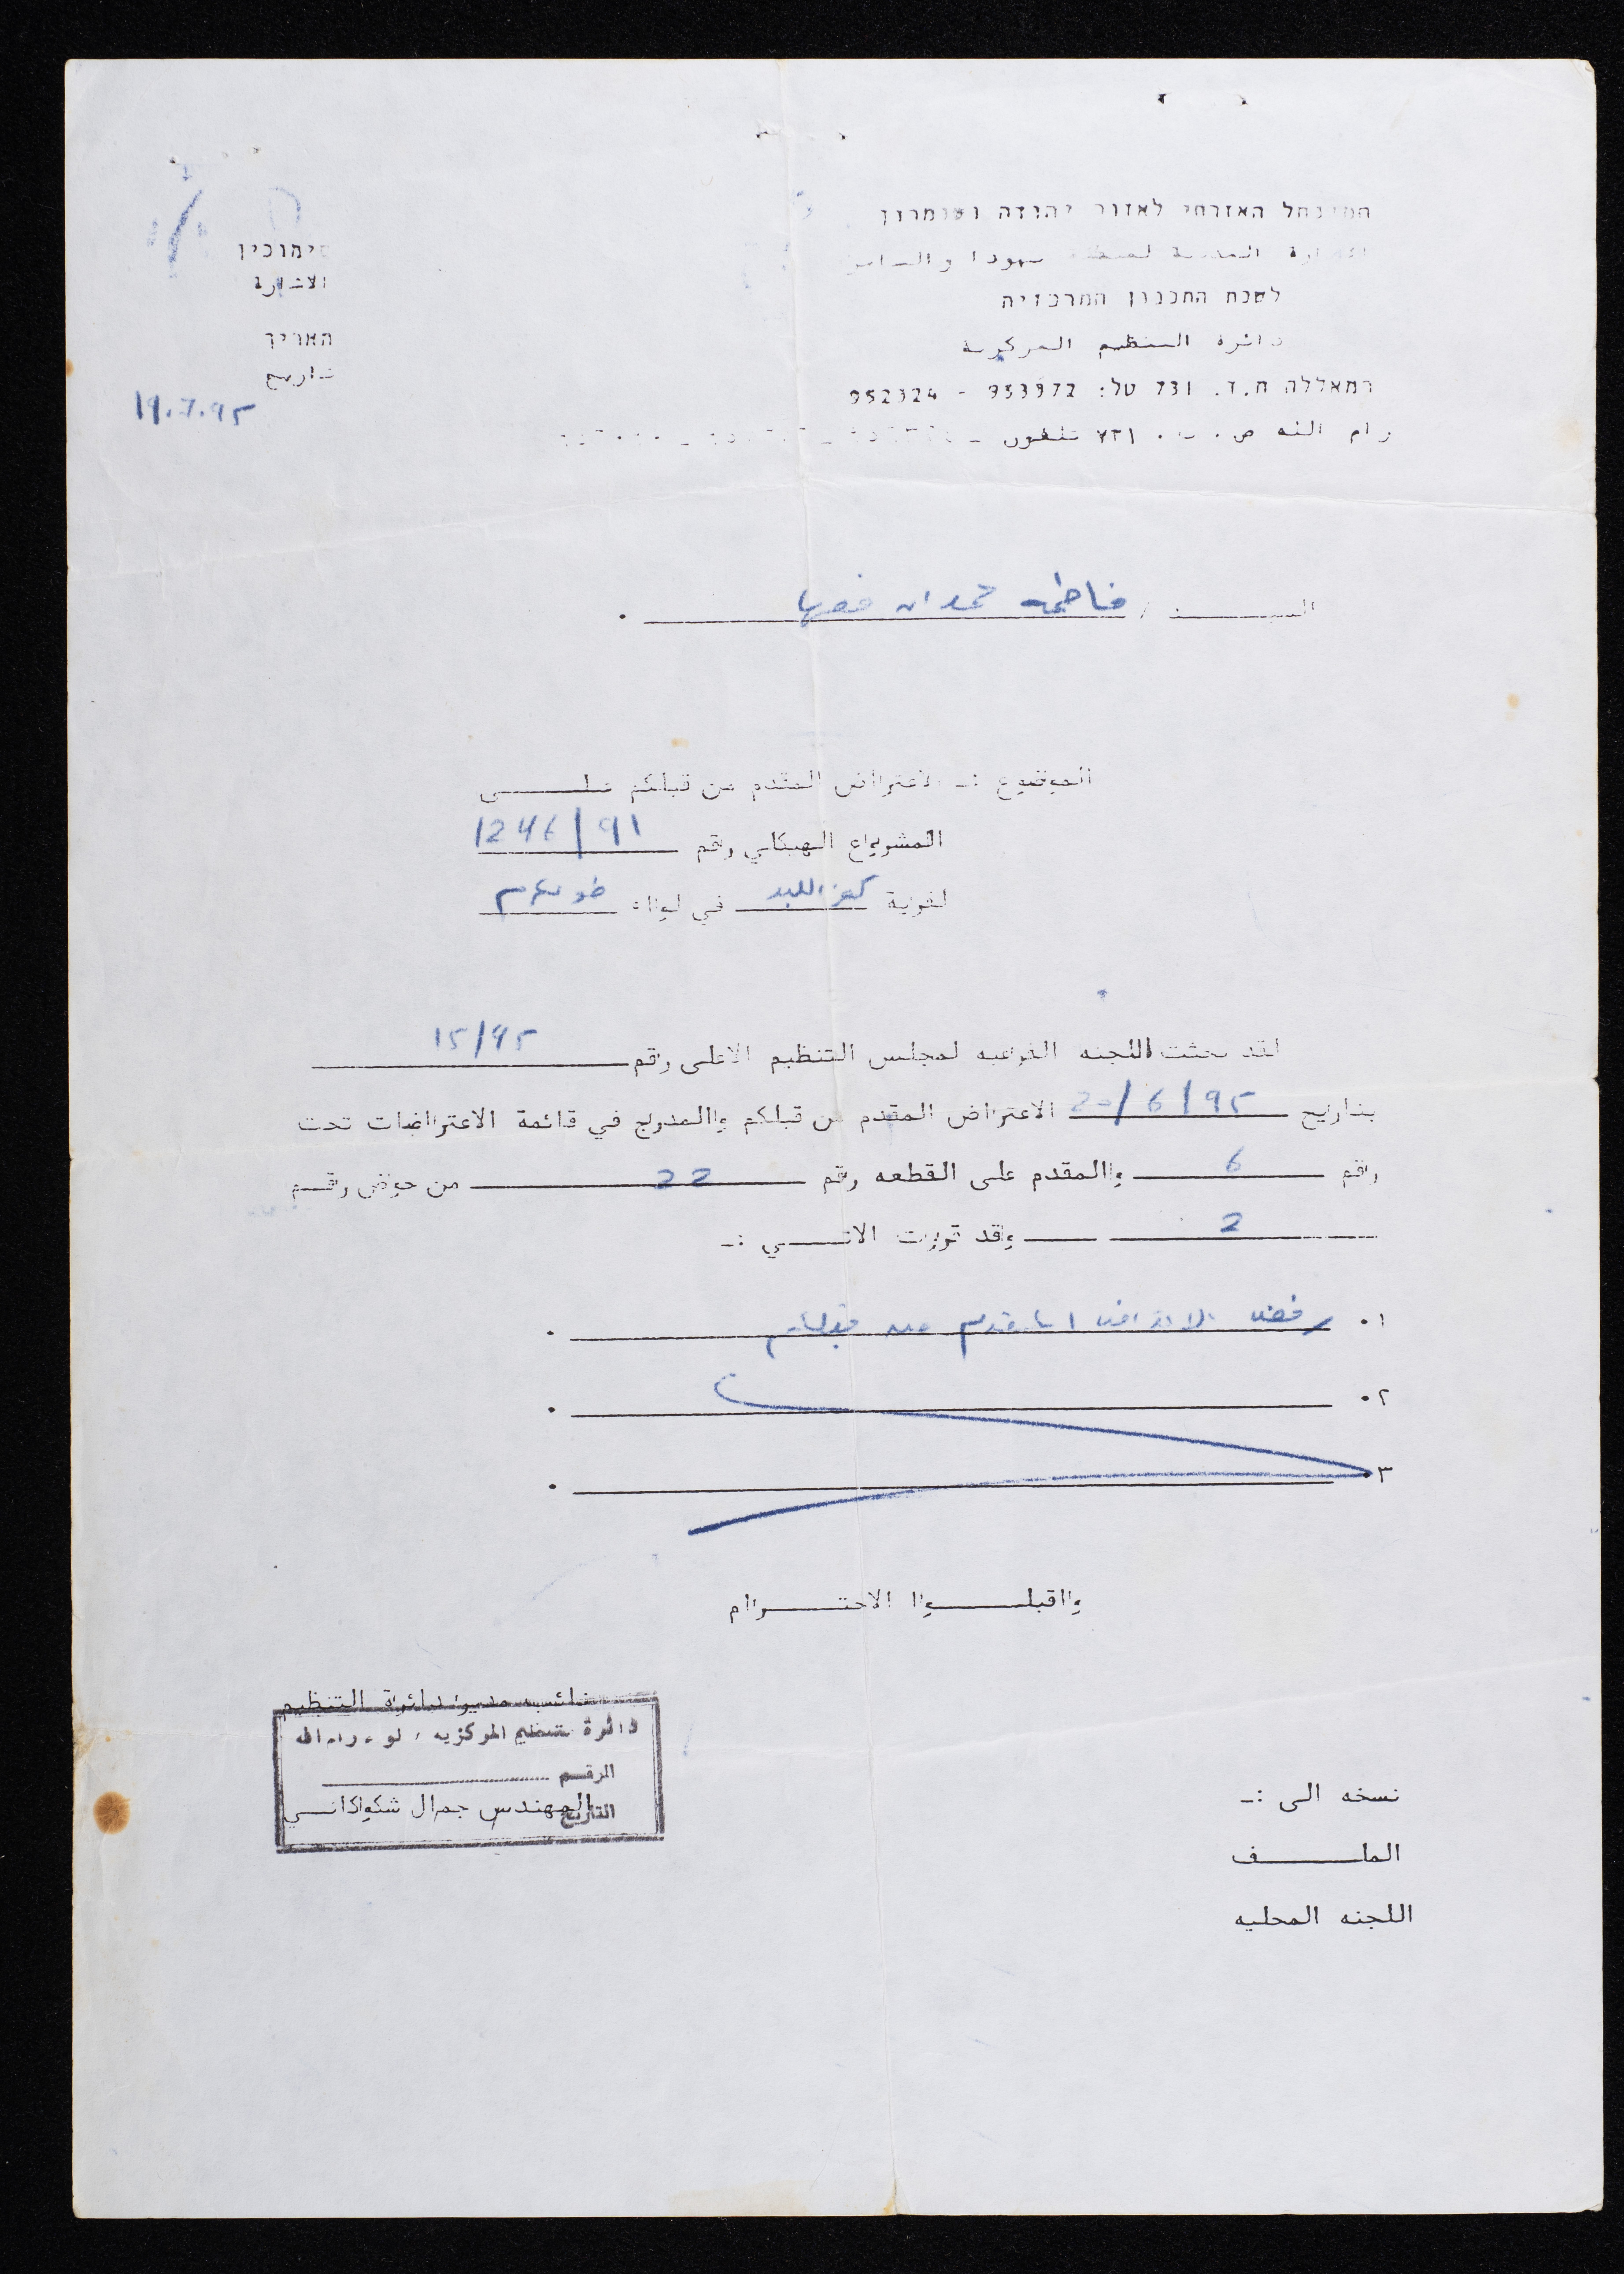 המינהל האזרחי לאזור יהודה ושומרון
סימוכין
الادارة المدنية لمنطقة يهودا والسامرة
الاشارة
לשכת התכנון המרכזית
האריך
دائرة التنظيم المركزية
تاريخ
רמאללה ת.ד. 731 טל: 953972 - 952324
19.7.95
رام الله ص . ب . ٧٣١ تلفون
السيد / فاطمه حمدان فقها .
الموضوع :- الاعتراض المقدم من قبلكم على
المشروع الهيكلي رقم 1246/91
لقرية كفر اللبد في لواء طولكرم
لقد بحثت اللجنه الفرعيه لمجلس التنظيم الاعلى رقم 15/95
بتاريخ 20/6/95 الاعتراض المقدم من قبلكم والمدرج في قائمة الاعتراضات تحت
رقم 6 والمقدم على القطعه رقم 22 من حوض رقم
2 وقد قررت الاتي :-
١. رفض الاعتراض المقدم من قبلكم .
٢. .
٣. .
واقبلوا الاحترام
نائب مدير دائرة التنظيم
دائرة تنظيم المركزيه
الرقم
المهندس جمال
التاريخ
نسخه الى :-
الملف
اللجنه المحليه